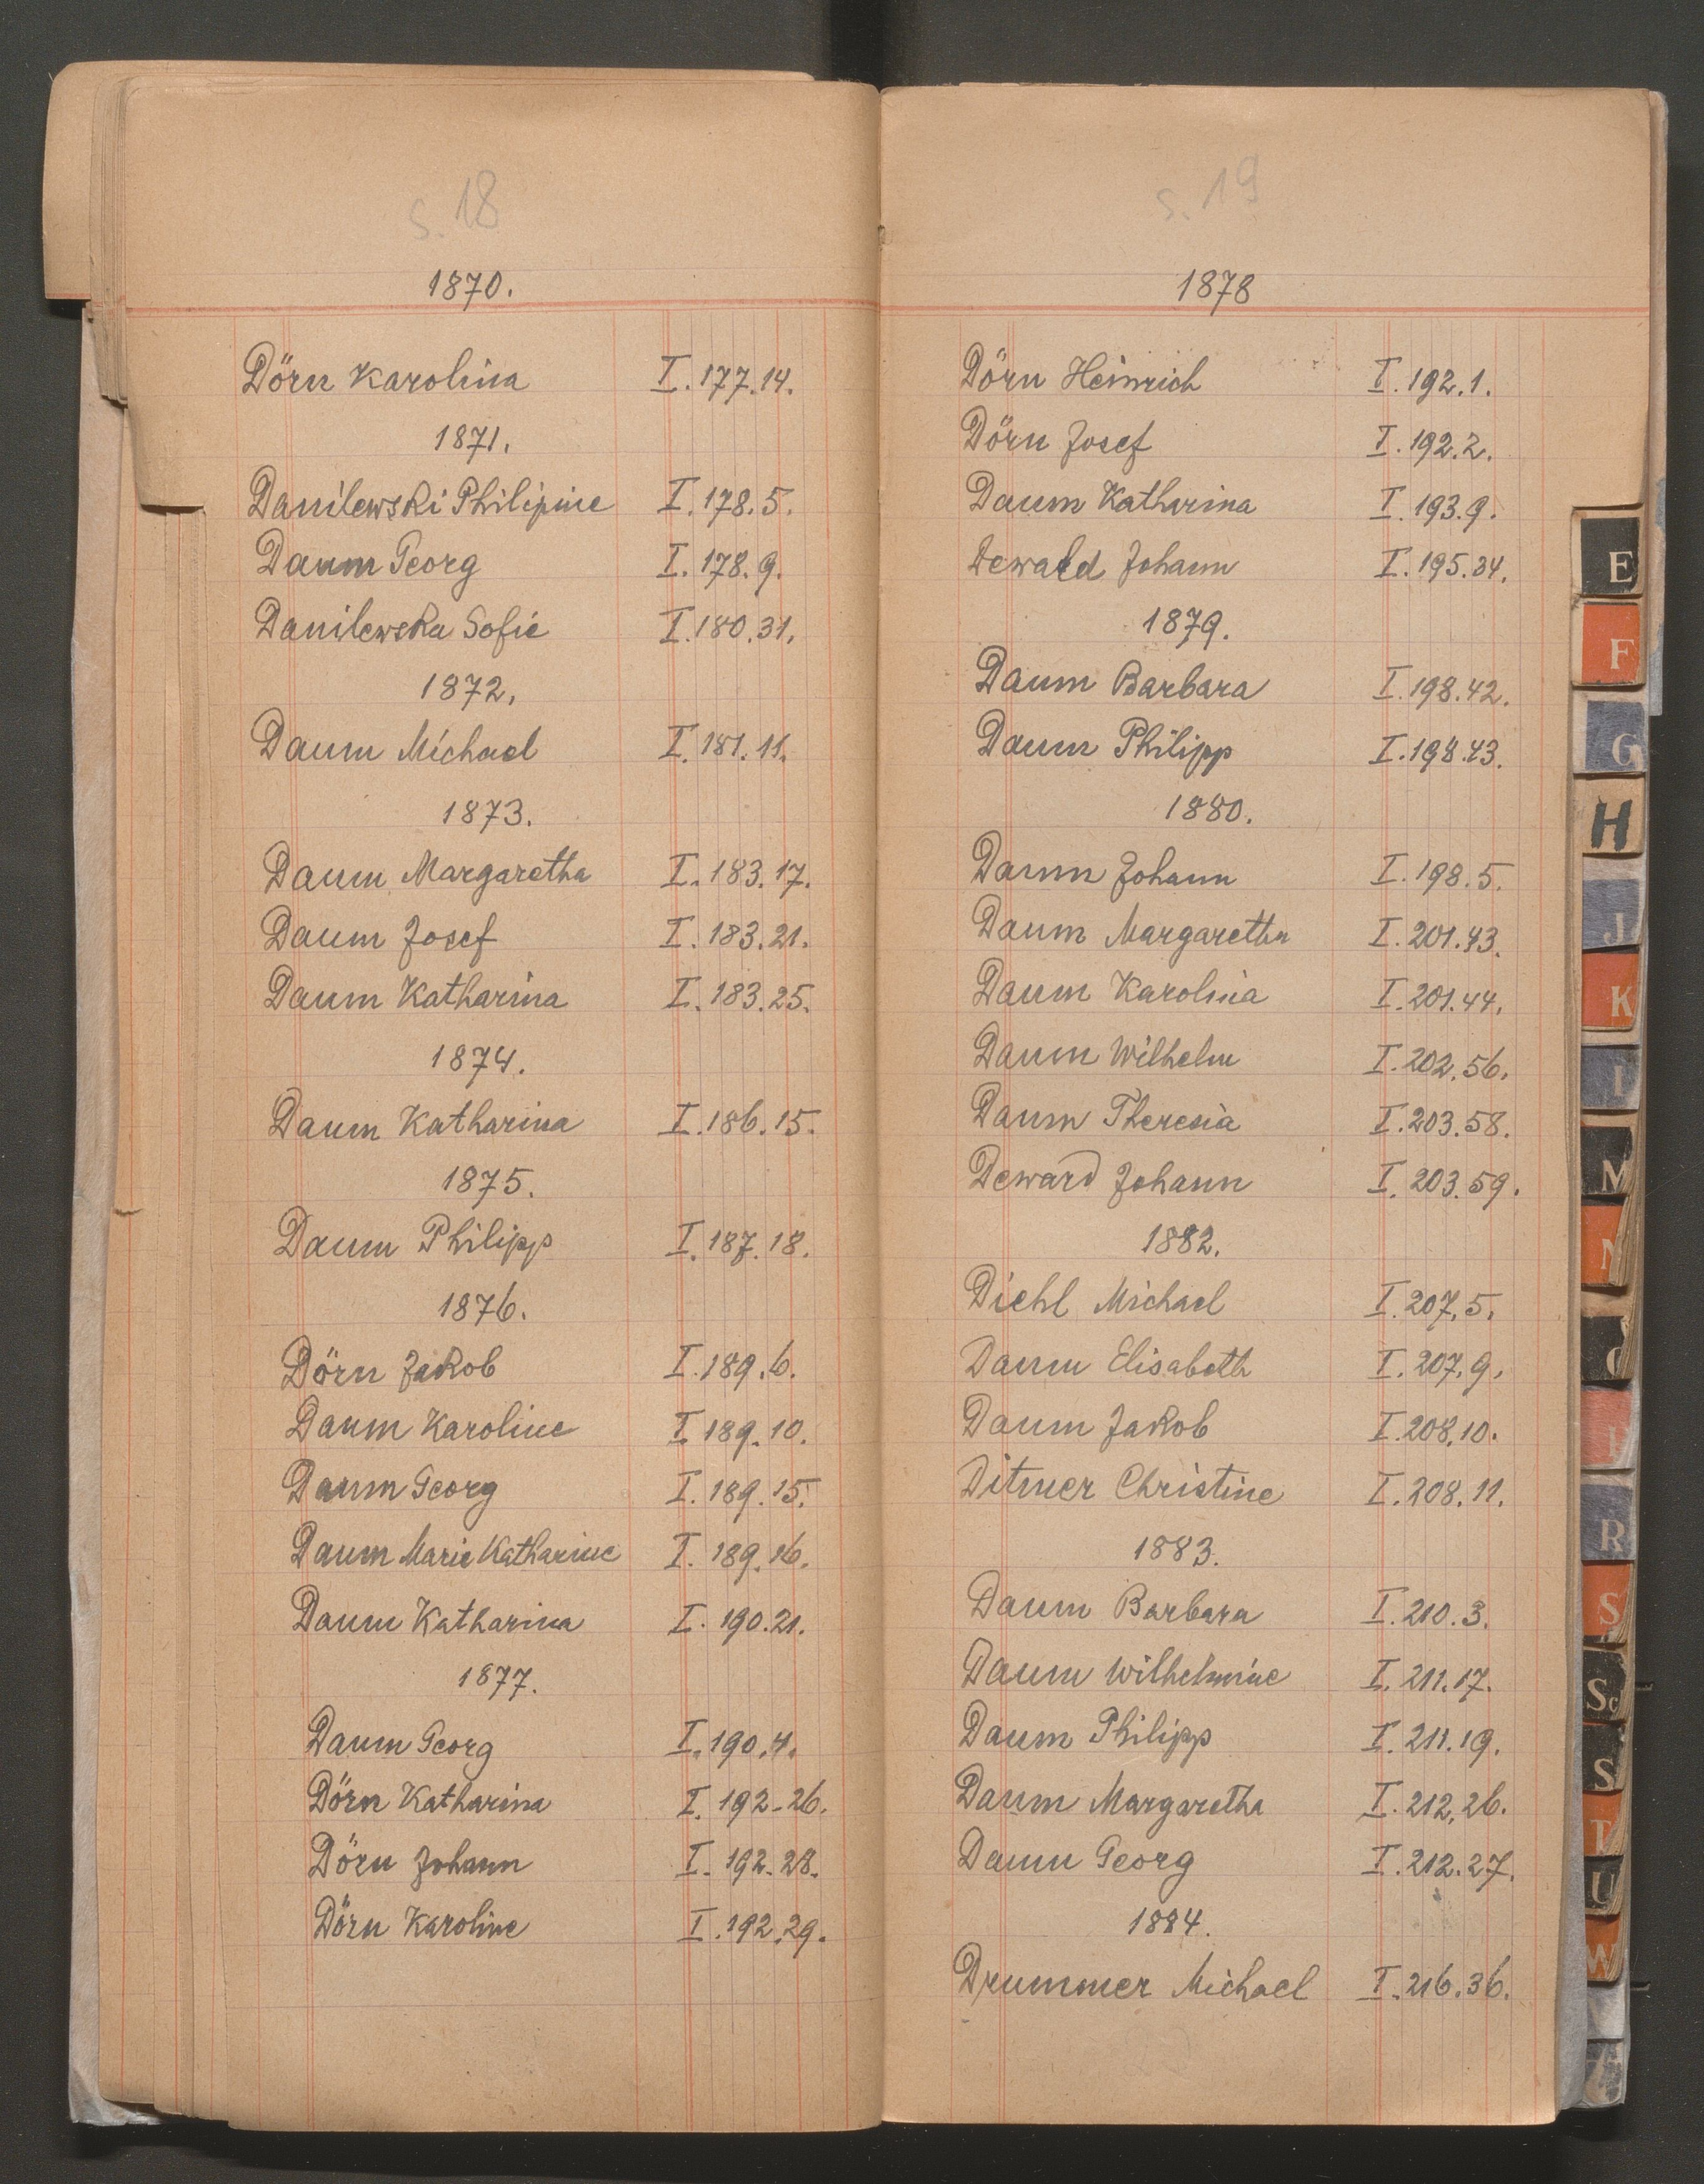 s. 18
1870.
Dörn Karolina I. 177. 14.
1871.
Danilewski Philipine I. 178. 5.
Daum Georg I. 178. 9.
Danilewska Sofie I. 180. 31.
1872.
Daum Michael I. 181. 11.
1873.
Daum Margaretha I. 183. 17.
Daum Josef I. 183. 21.
Daum Katharina I. 183. 25.
1874.
Daum Katharina I. 186. 15.
1875.
Daum Philipp I. 187. 18.
1876.
Dörn Jakob I. 189. 6.
Daum Karoline I. 189. 10.
Daum Georg I. 189. 15.
Daum Marie Katharine I. 189. 16.
Daum Katharina I. 190. 21.
1877.
Daum Georg I. 190. 4.
Dörn Katharina I. 192-26.
Dörn Johann I. 192. 28.
Dörn Karoline I. 192. 29.
s. 19
1878
Dörn Heinrich I. 192. 1.
Dörn Josef I. 192. 2.
Daum Katharina I. 193. 9.
Dewald Johann I. 195. 34.
1879.
Daum Barbara I. 198. 42.
Daum Philipp I. 198. 43.
1880.
Daum Johann I. 198. 5.
Daum Margaretha I. 201. 43.
Daum Karolina I. 201. 44.
Daum Wilhelm I. 202. 56.
Daum Theresia I. 203. 58.
Deward Johann I. 203. 59.
1882.
Diehl Michael I. 207. 5.
Daum Elisabeth I. 207. 9.
Daum Jakob I. 208. 10.
Ditmer Christine I. 208. 11.
1883.
Daum Barbara I. 210. 3.
Daum Wilhelmine I. 211. 17.
Daum Philipp I. 211. 19.
Daum Margaretha I. 212. 26.
Daum Georg I. 212. 27.
1884.
Drummer Michael I. 216. 36.
E
F
G
H
J
K
M
N
R
S
Sc
S
T
U
W